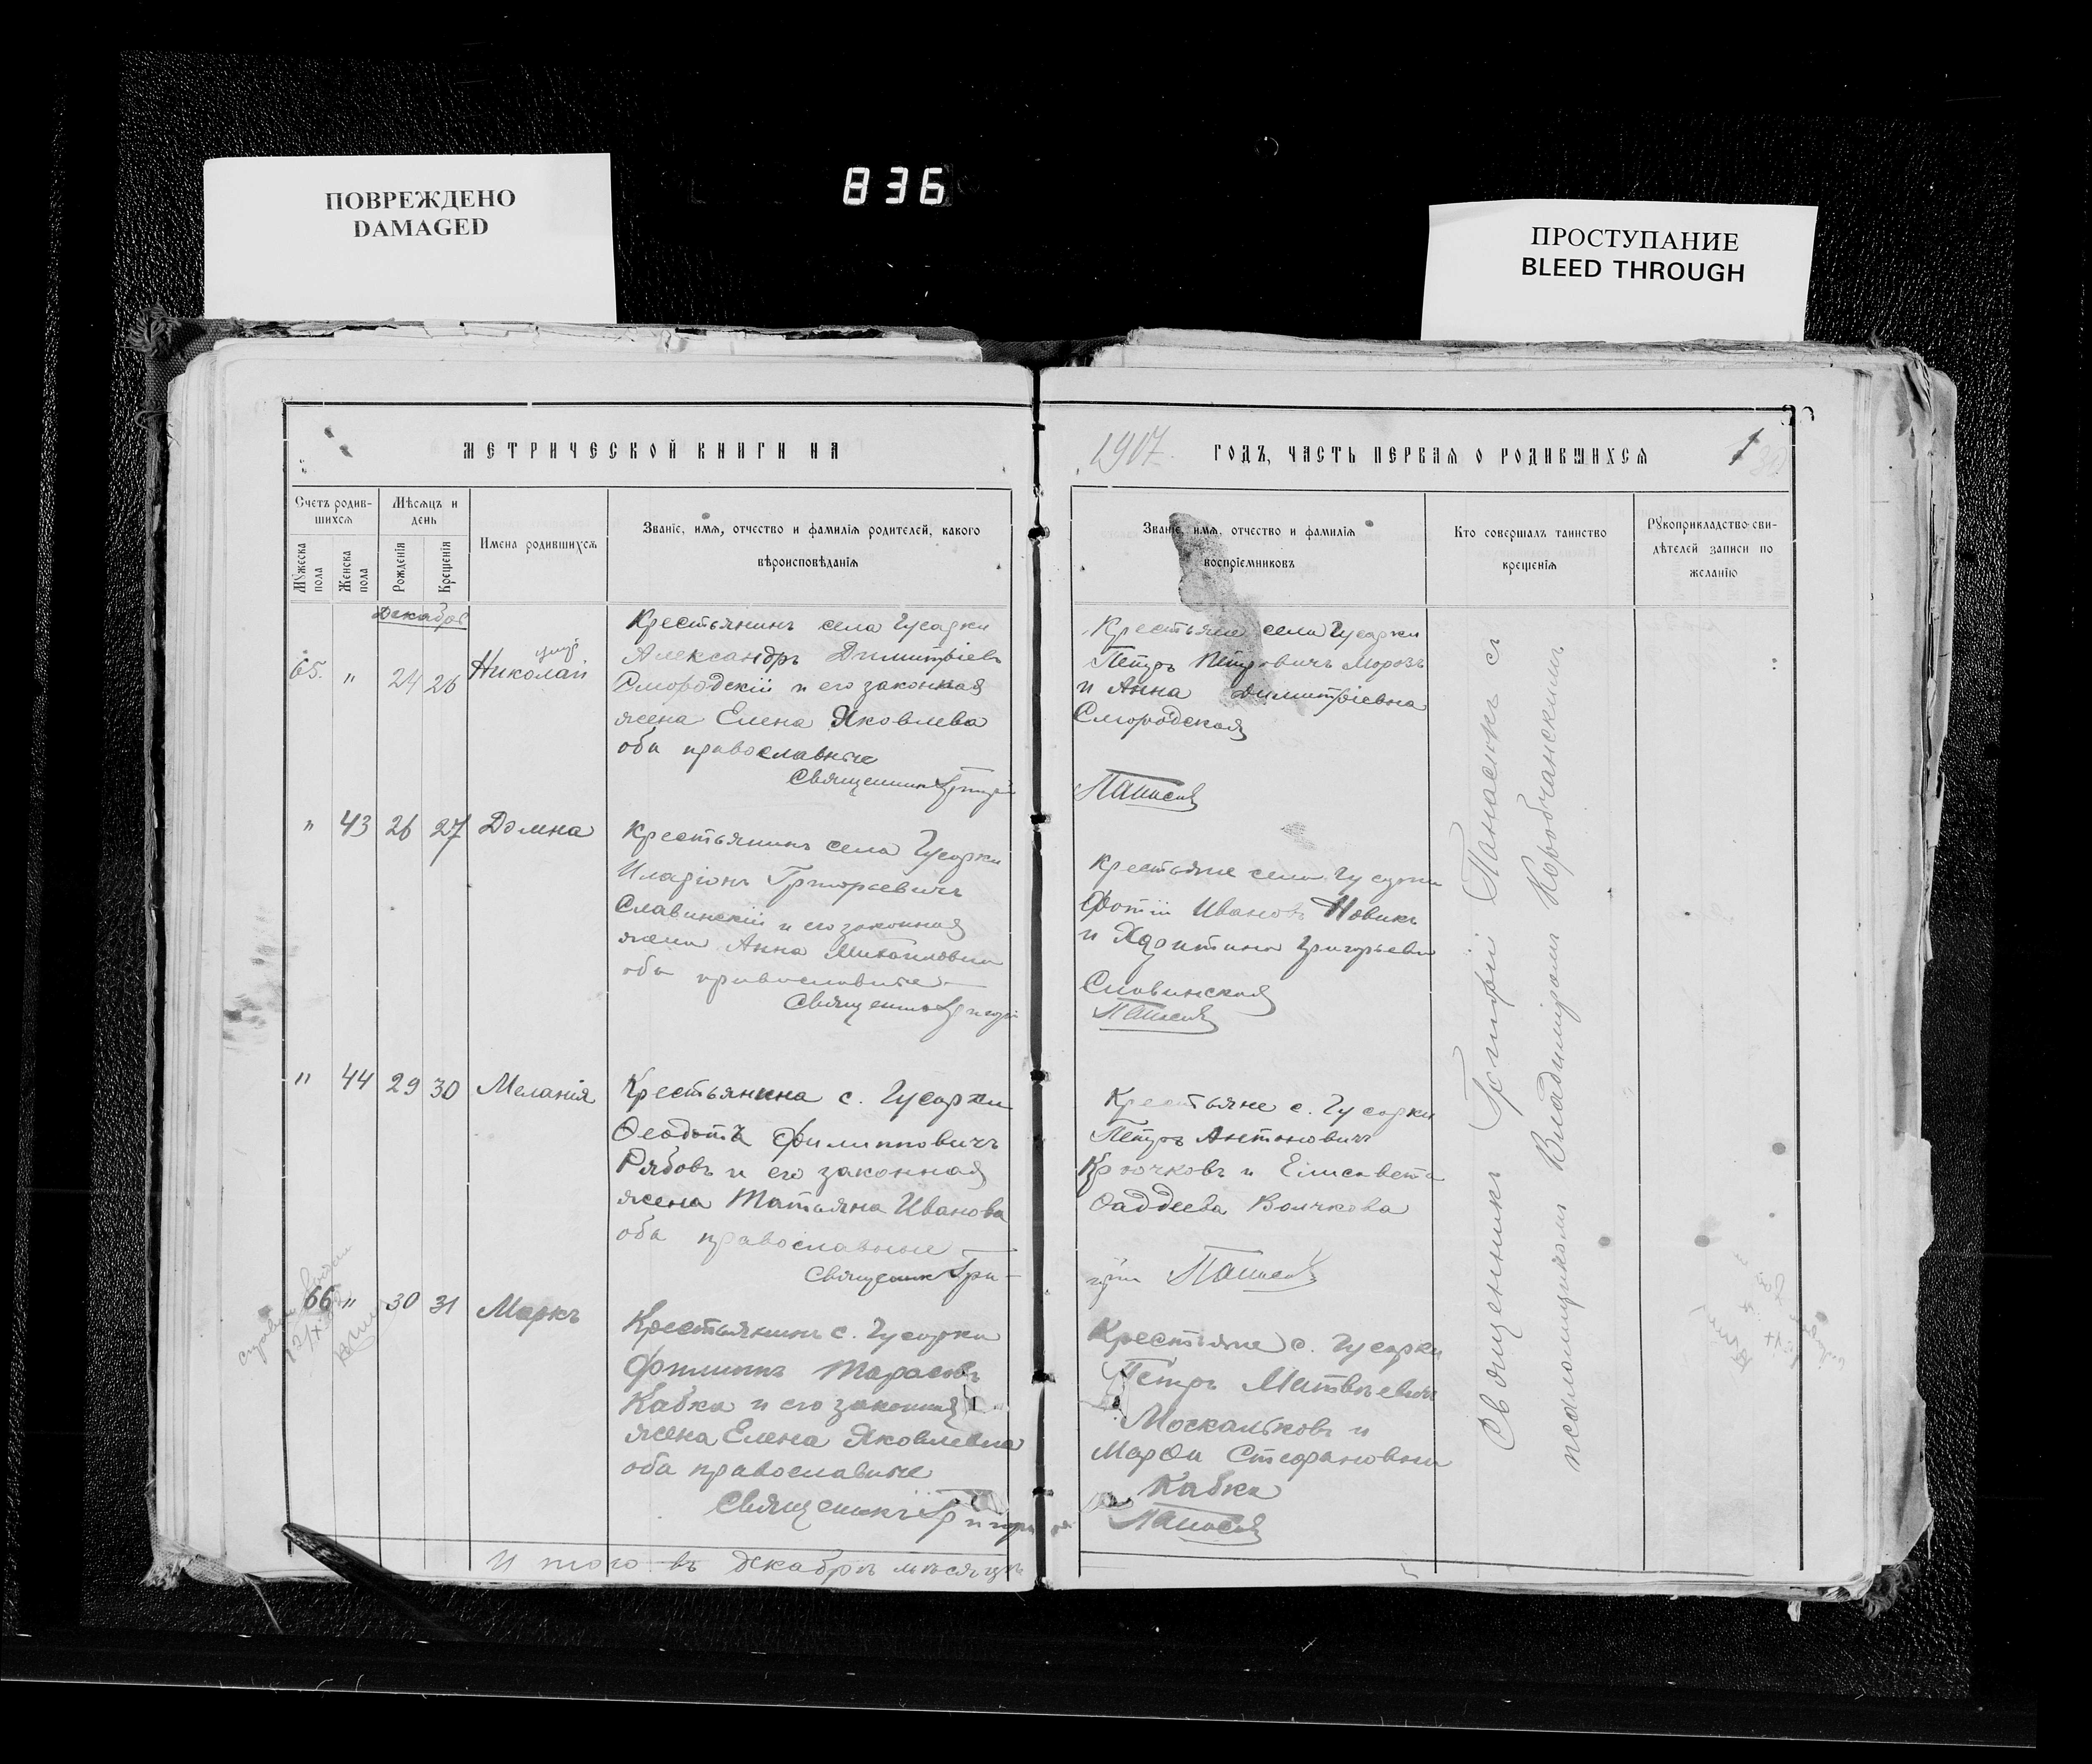 ПОВРЕЖДЕНО
DAMAGED
836
ПРОСТУПАНИЕ
BLEED THROUGH
МЕТРИЧЕСКОЙ КНИГИ НА
Счетъ родив-
шихся
Мѣсяцъ и
день
Мужеска
пола
Женска
пола
Рожденія
Крещенія
Имена родившихся
Званіе, имя, отчество и фамилія родителей, какого
вѣроисповѣданія
Декабрь
65. " 24 26 Николай
Крестьянинъ села Гусарки
Александръ Димитріевъ
Смородскій и его законная
жена Елена Яковлева
оба православные
Священникъ Григорій
" 43 26 27 Домна
Крестьянинъ села Гусарки
Иларіонъ Григорьевичъ
Славинскій и его законная
жена Анна Михайловна
оба православные
Священникъ Григорій
" 44 29 30 Меланія
Крестьянина с. Гусарки
Ѳеодотъ Филипповичъ
Рябовъ и его законная
жена Татьяна Иванова
оба православные
Священник Гри-
66 " 30 31 Маркъ
Крестьянинъ с. Гусарки
Филиппъ Тарасовъ
Кабка и его законная
жена Елена Яковлевна
оба православные
Священникъ Григорій
Итого въ Декабрѣ мѣсяцѣ
1917 ГОДЪ, ЧАСТЬ ПЕРВАЯ О РОДИВШИХСЯ
Званіе, имя, отчество и фамилія
воспріемниковъ
Кто совершалъ таинство
крещенія
Рукоприкладство сви-
дѣтелей записи по
желанію
Крестьяне села Гусарки
Петръ Петровичъ Морозъ
и Анна Димитріевна
Смородская
Панасюк
Крестьяне села Гусарки
Фотій Ивановъ Новикъ
и Харитина Григорьева
Славинская
Панасюк
Крестьяне с. Гусарки
Петръ Антоновичъ
Крючковъ и Елисавета
Ѳаддеева Волчкова
горій Панасюк
Крестьяне с. Гусарки
Петръ Матвѣевичъ
Москальковъ и
Марѳа Стефановна
Кабка
Панасюк
Священникъ Григорій Панасюкъ съ
псаломщикомъ Владиміромъ Коробчанскимъ